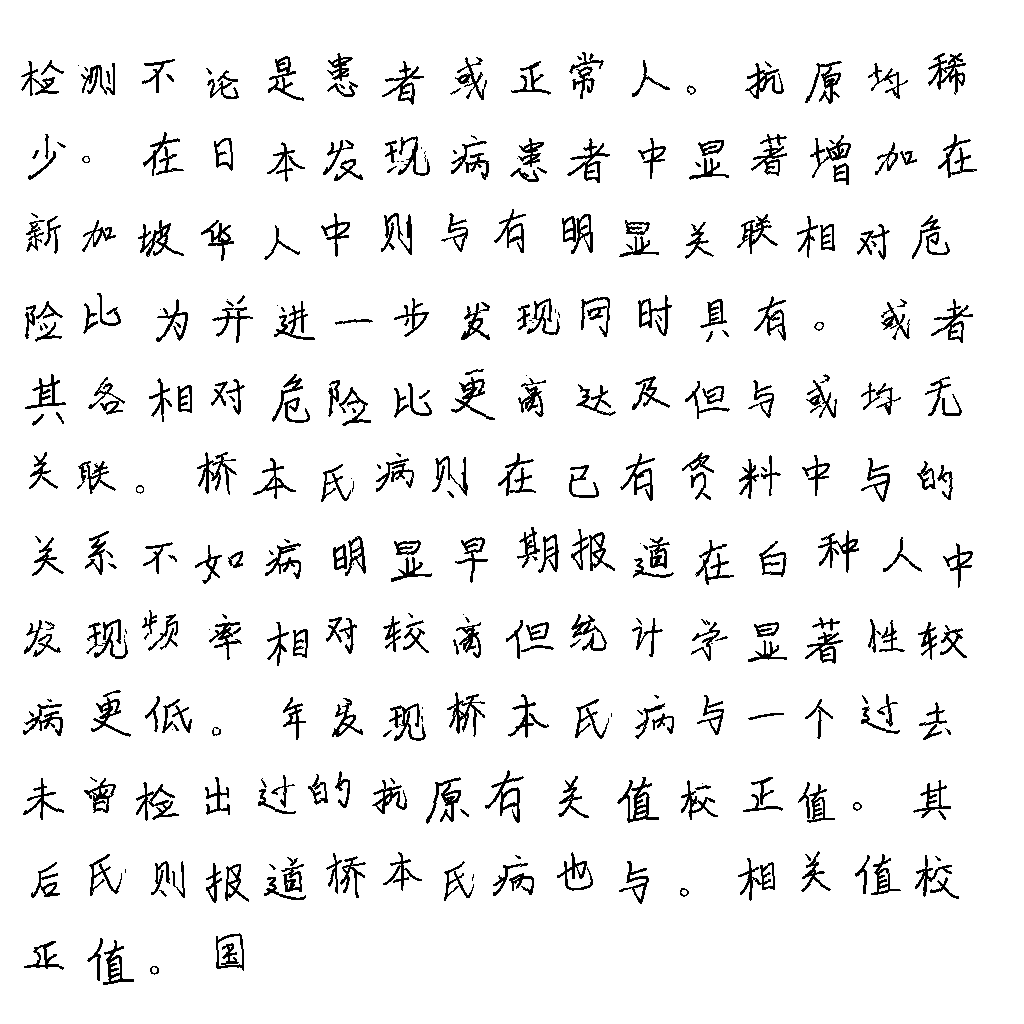 检测不论是患者或正常人。抗原均稀
少。在日本发现病患者中显著增加在
新加坡华人中则与有明显关联相对危
险比为并进一步发现同时具有。或者
其各相对危险比更离达及但与或均无
关联。桥本氏病则在已有资料中与的
关系不如病明显早期报道在白种人中
发现频率相对较离但统计学显著性较
病更低。年发现桥本氏病与一个过去
未曾检出过的抗原有关值校正值。其
后氏则报道桥本氏病也与。相关值校
正值。国